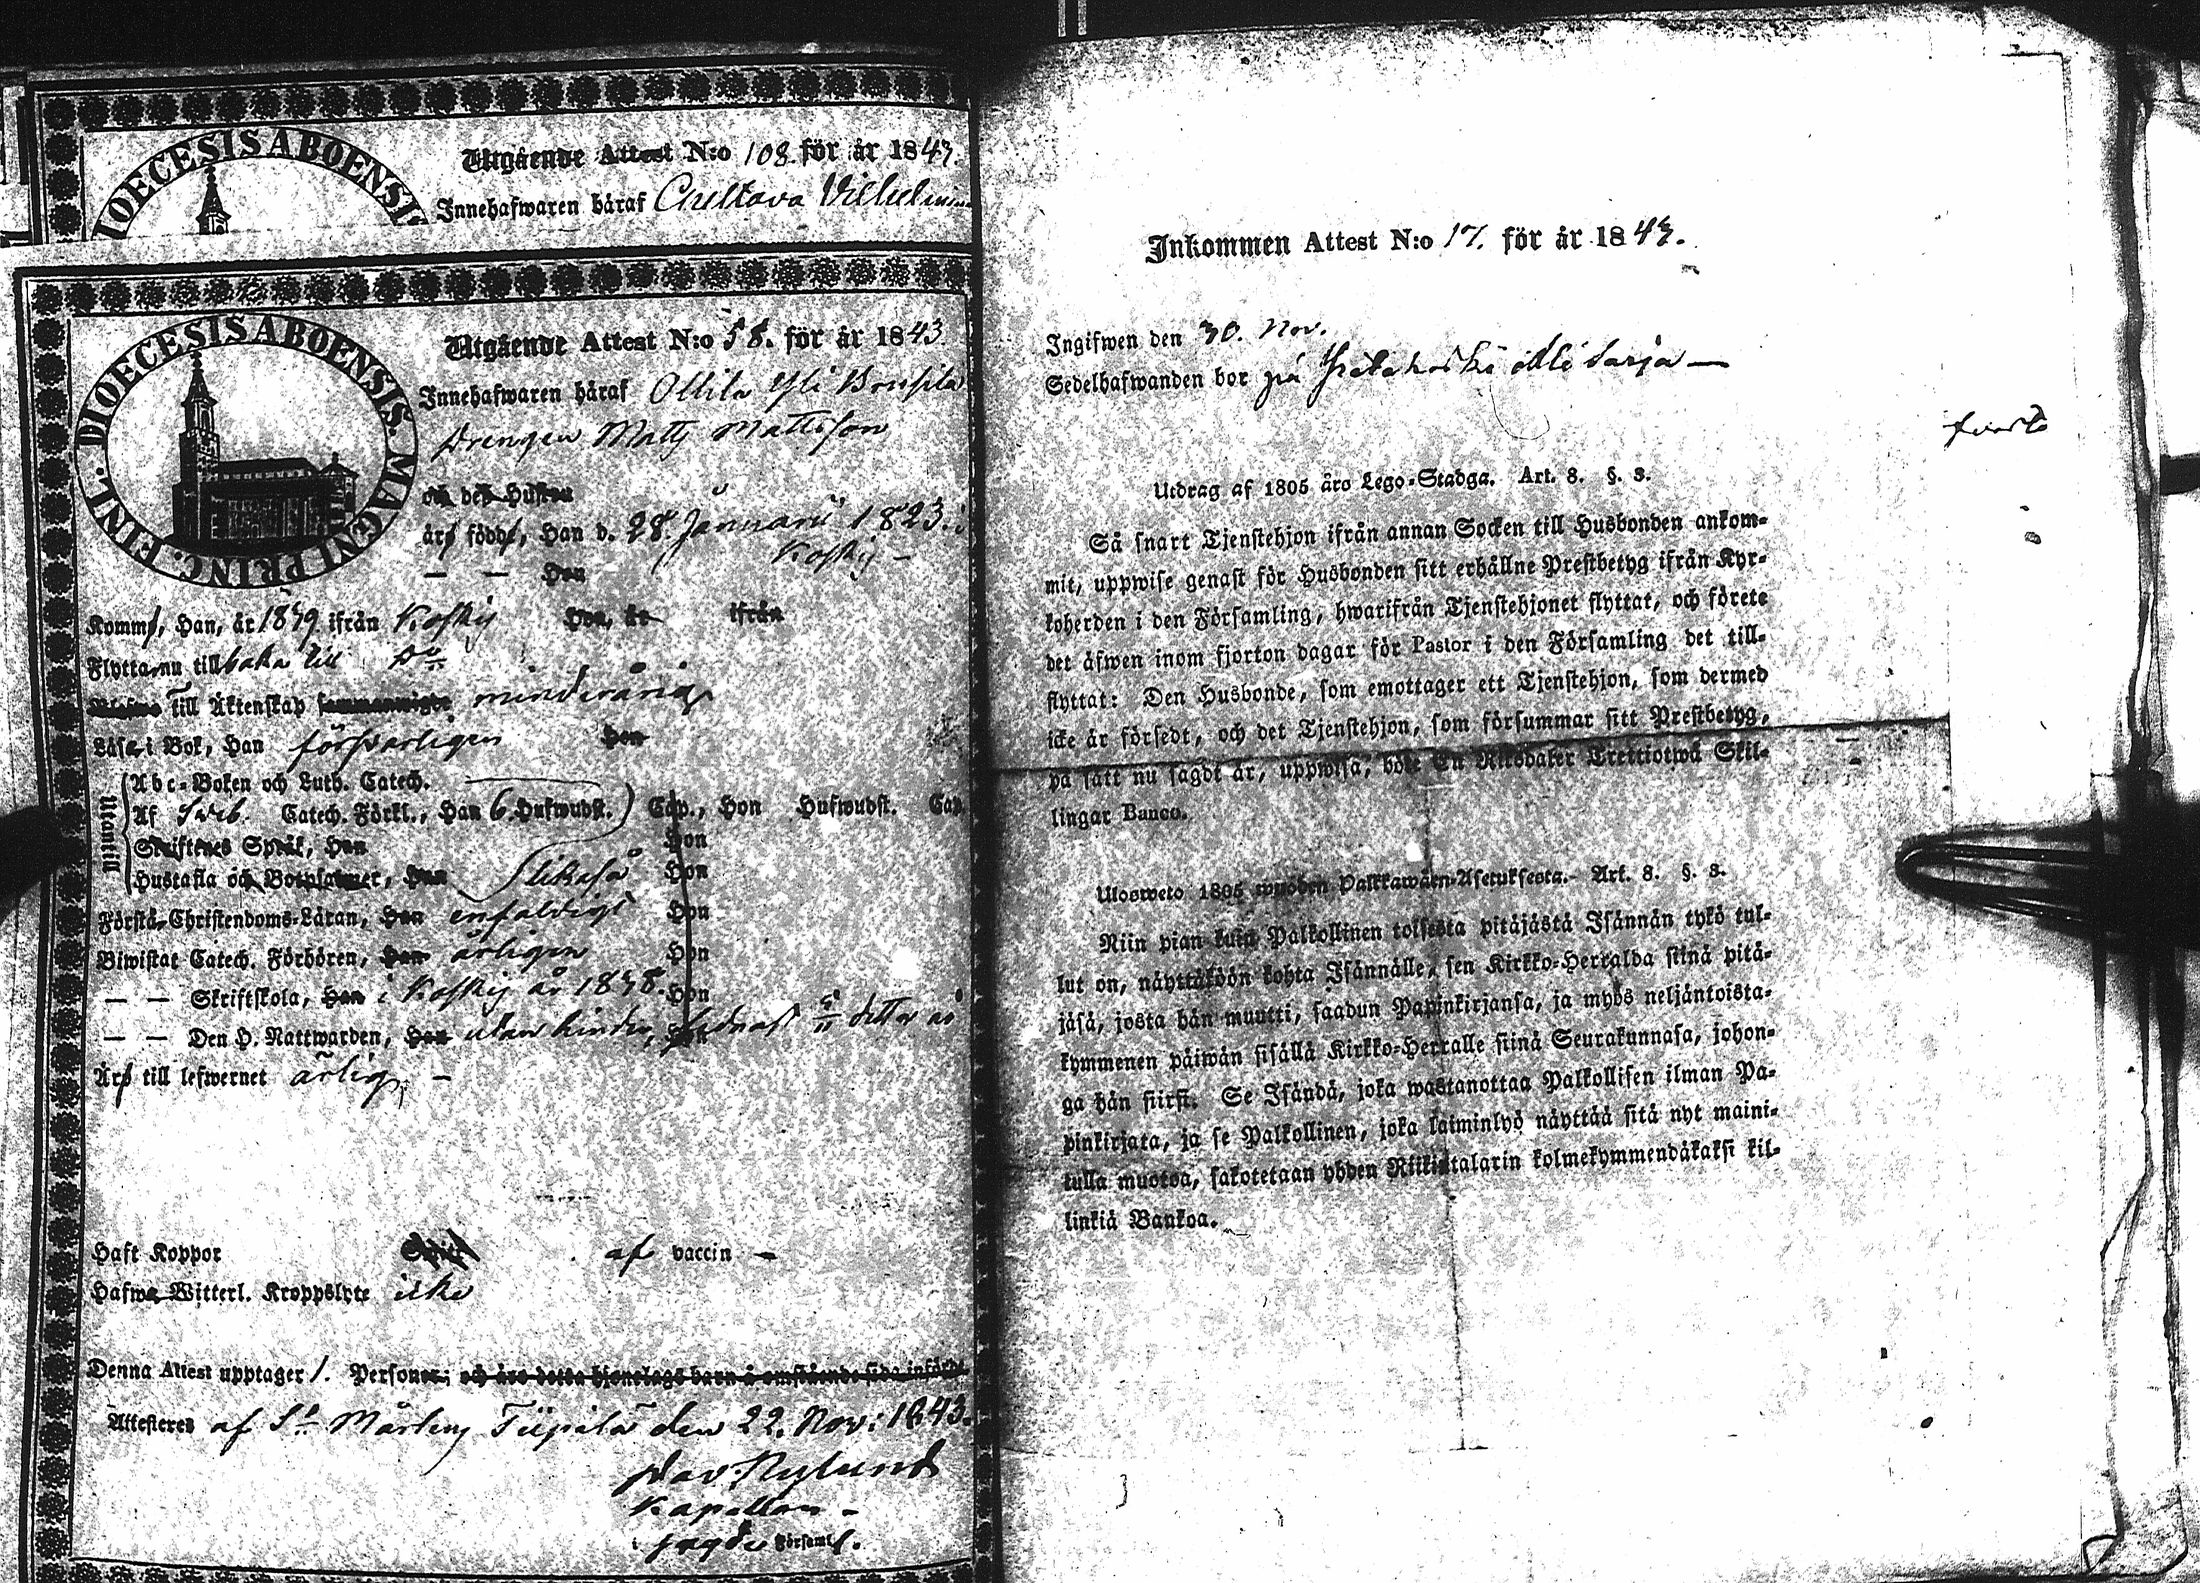 DIOECESIS ABOENSI
Utgående Attest N:o 108. för år 1843.
Innehafwaren håraf Gustava Vilhelmina
FINL. DIOECESIS ABOENSIS. MAGNI PRINC.
Utgående Attest N:o 58. för år 1843
Innehafwaren håraf Ollila
Drengen Matts Mattsson
och des Hustru
äro födde, Han d. 28. Januarii 1823. i
Koskis —
— — Hon
Komme, Han, år 1839 ifrån Koskis Hon, år ifrån
Flytta nu tillbaka till Do
Till Äktenskap sammanwigde minderårig
Läsa i Bok, Han förswarligen Hon
Utantill
Abc-Boken och Luth. Catech.
Af Sveb. Catech. Förkl., Han 6. Hufwudst. Cap., Hon Hufwudst. Cap.
Skriftenes Språk, Han Hon
Hustafla och Botpsalmer, Han likaså Hon
Förstå Christendoms-Läran, Han enfaldigt Hon
Biwistat Catech. Förhören, Han årligen Hon
— — Skriftskola, Han i Koskis år 1838. Hon
— — Den H. Nattwarden, Han utan hinder, sednast detta år Hon
Äro till lefwernet ärlig. —
Haft Koppor af vaccin —
Hafwa Witterl. Kroppslyte icke
Denna Attest upptager 1. Personer; och äro detta hjonelags barn å omstående sida införde
Attesteres af St Mårtens Tiipilä den 22. Nov: 1843.
Dav. Nylund
Kapellan —
i sagde Församl.
Inkommen Attest N:o 17. för år 1843.
Ingifwen den 30. Nov.
Sedelhafwanden bor på
Utdrag af 1805 års Lego-Stadga. Art. 8. §. 3.
Så snart Tjenstehjon ifrån annan Socken till Husbonden ankom-
mit, uppwise genast för Husbonden sitt erhållne Prestbetyg ifrån Kyr-
koherden i den Församling, hwarifrån Tjenstehjonet flyttat, och förete
det äfwen inom fjorton dagar för Pastor i den Församling det till-
flyttat: Den Husbonde, som emottager ett Tjenstehjon, som dermed
icke är försedt, och det Tjenstehjon, som försummar sitt Prestbetyg,
på sätt nu sagdt är, uppwisa, böte En Riksdaler Trettiotwå Skil-
lingar Banco.
Ulosweto 1805 wuoden Palkkawäen-Asetuksesta. Art. 8. §. 3.
Niin pian kuin Palkollinen toisesta pitäjästä Isännän tykö tul-
lut on, näyttäköön kohta Isännälle, sen Kirkko-Herralda siinä pitä-
jäsä, josta hän muutti, saadun Papinkirjansa, ja myös neljäntoista-
kymmenen päiwän sisällä Kirkko-Herralle siinä Seurakunnasa, johon-
ga hän siirst. Se Isändä, joka wastanottaa Palkollisen ilman Pa-
pinkirjata, ja se Palkollinen, joka laiminlyö näyttää sitä nyt maini-
tulla muotoa, sakotetaan yhden Riikintalarin kolmekymmendäkaksi kil-
linkiä Bankoa.